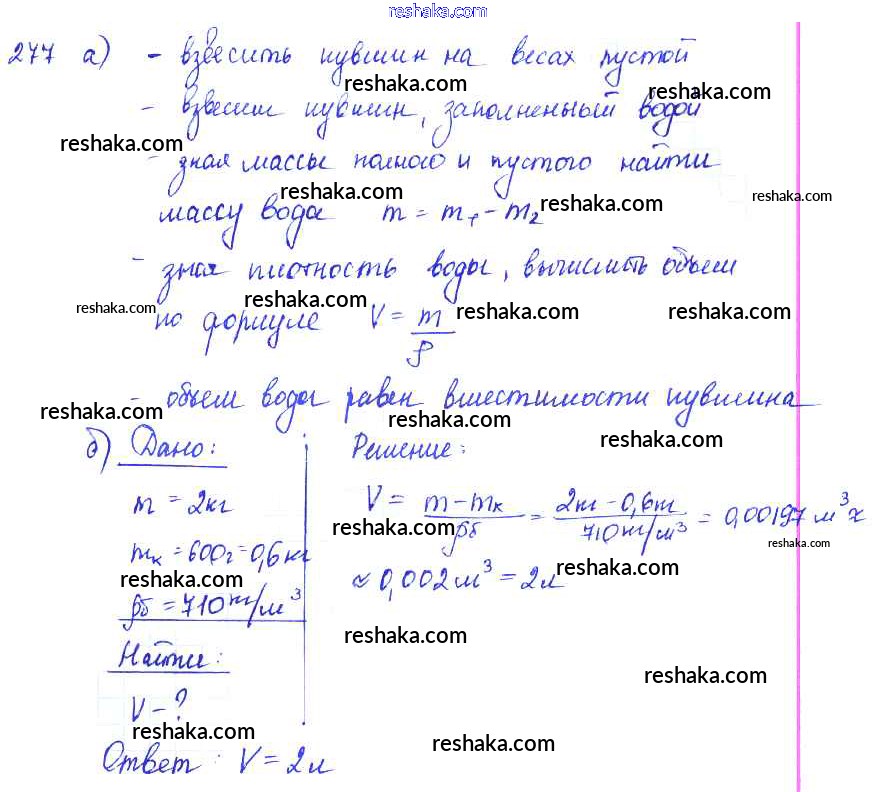 reshaka.com
277 а) - взвесить кувшин на весах пустой
reshaka.com reshaka.com
- взвесим кувшин, заполненный водой
reshaka.com
- зная массы полного и пустого найти
reshaka.com reshaka.com reshaka.com
массу воды m = m₁ - m₂
- зная плотность воды, вычислить объем
reshaka.com reshaka.com reshaka.com reshaka.com
по формуле V = m/ρ
- объем воды равен вместимости кувшина
reshaka.com reshaka.com reshaka.com
б) Дано: Решение:
m = 2кг V = (m - mк)/ρб = (2кг - 0,6кг)/(710 кг/м³) = 0,00197 м³ ≈
reshaka.com reshaka.com
mк = 600г = 0,6 кг ≈ 0,002 м³ = 2л
reshaka.com reshaka.com
ρб = 710 кг/м³
reshaka.com
Найти:
reshaka.com
V - ?
reshaka.com reshaka.com
Ответ: V = 2л